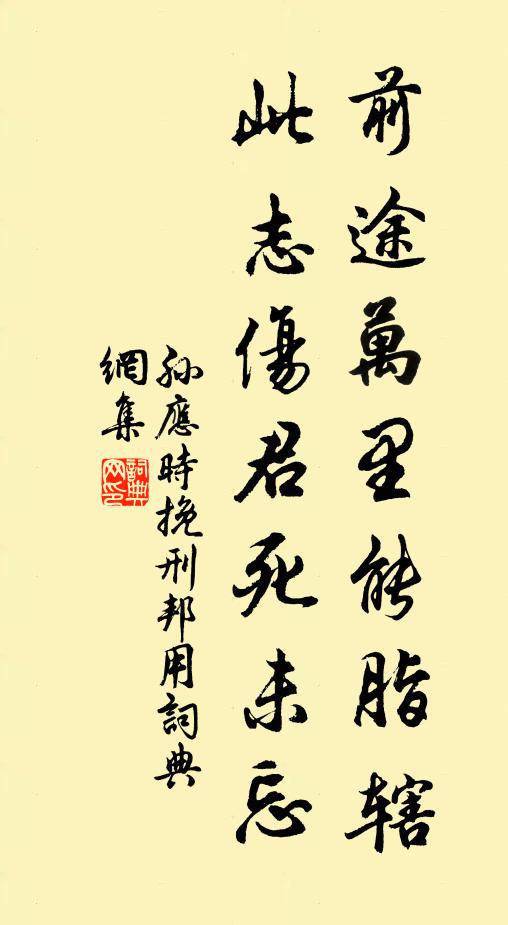 前途萬里能脂辖
此志傷君死未忘
孙應時挽刑邦用詞典
網集
詞典网印